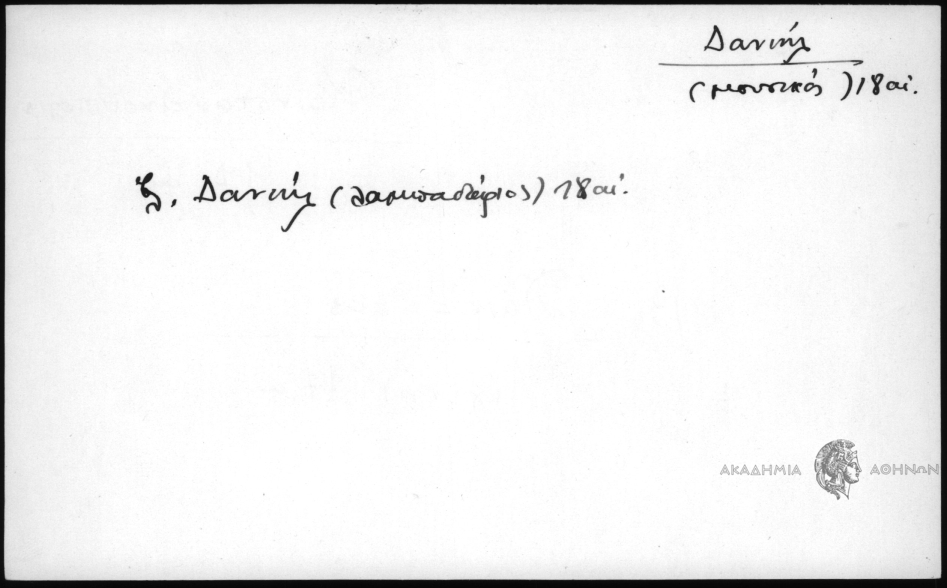 Δανιήλ
(μουσικός) 18 αἰ.
βλ. Δανιήλ (λαμπαδάριος) 18 αἰ.
ΑΚΑΔΗΜΙΑ ΑΘΗΝΩΝ